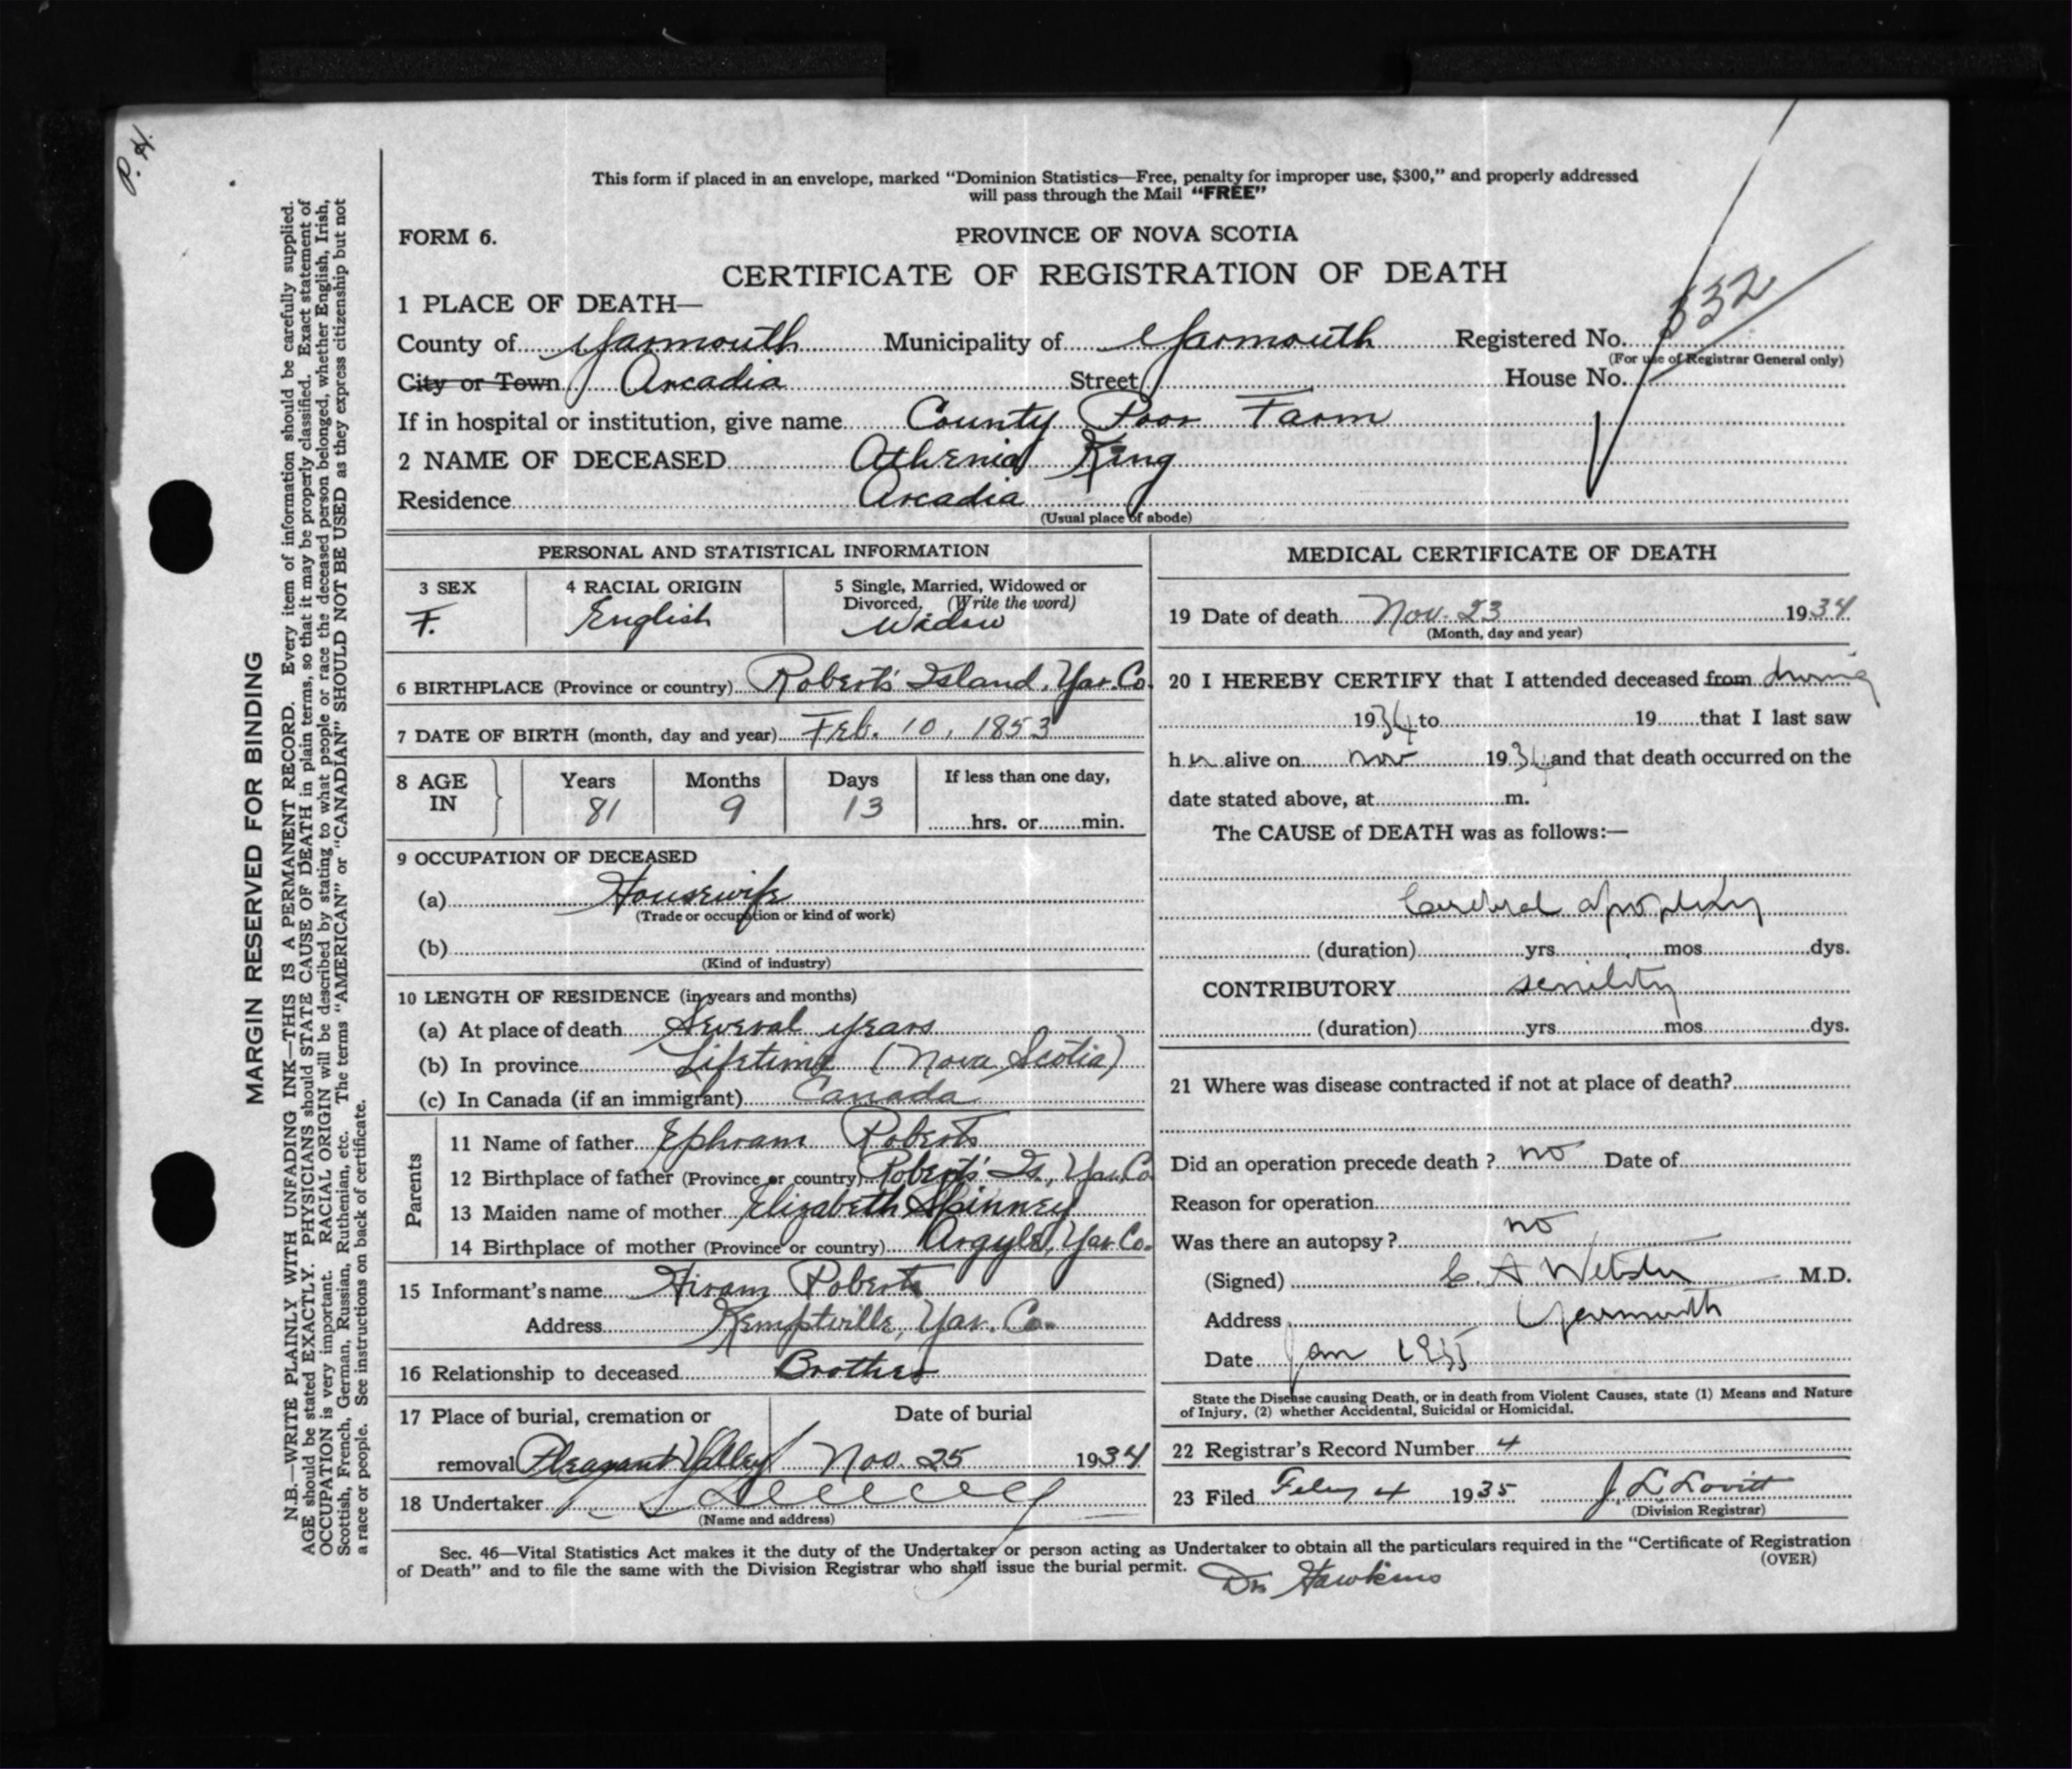 P. H.
This form if placed in an envelope, marked "Dominion Statistics—Free, penalty for improper use, $300," and properly addressed
will pass through the Mail "FREE"
FORM 6. PROVINCE OF NOVA SCOTIA
CERTIFICATE OF REGISTRATION OF DEATH
1 PLACE OF DEATH—
County of Yarmouth Municipality of Yarmouth Registered No. 332
(For use of Registrar General only)
City or Town Arcadia Street House No.
If in hospital or institution, give name County Poor Farm
2 NAME OF DECEASED Athenia King
Residence Arcadia
(Usual place of abode)
PERSONAL AND STATISTICAL INFORMATION
3 SEX 4 RACIAL ORIGIN 5 Single, Married, Widowed or
Divorced. (Write the word)
F. English Widow
6 BIRTHPLACE (Province or country) Robert's Island, Yar. Co.
7 DATE OF BIRTH (month, day and year) Feb. 10, 1853
8 AGE IN Years Months Days If less than one day,
81 9 13 hrs. or min.
9 OCCUPATION OF DECEASED
(a) Housewife
(Trade or occupation or kind of work)
(b)
(Kind of industry)
10 LENGTH OF RESIDENCE (in years and months)
(a) At place of death Several years
(b) In province Lifetime (Nova Scotia)
(c) In Canada (if an immigrant) Canada
Parents
11 Name of father Ephram Roberts
12 Birthplace of father (Province or country) Robert's Is., Yar. Co.
13 Maiden name of mother Elizabeth Spinney
14 Birthplace of mother (Province or country) Argyle, Yar. Co.
15 Informant's name Hiram Roberts
Address Kemptville, Yar. Co.
16 Relationship to deceased Brother
17 Place of burial, cremation or Date of burial
removal Pleasant Valley Nov. 25 1934
18 Undertaker
(Name and address)
MEDICAL CERTIFICATE OF DEATH
19 Date of death Nov. 23 1934
(Month, day and year)
20 I HEREBY CERTIFY that I attended deceased from during
1934 to 19 that I last saw
her alive on nov 1934 and that death occurred on the
date stated above, at m.
The CAUSE of DEATH was as follows:—
Cerebral apoplexy
(duration) yrs. mos. dys.
CONTRIBUTORY senility
(duration) yrs. mos. dys.
21 Where was disease contracted if not at place of death?
Did an operation precede death? no Date of
Reason for operation
Was there an autopsy? no
(Signed) C. A Webster M.D.
Address Yarmouth
Date Jan 1935
State the Disease causing Death, or in death from Violent Causes, state (1) Means and Nature
of Injury, (2) whether Accidental, Suicidal or Homicidal.
22 Registrar's Record Number 4
23 Filed Feby 4 1935 J. L Lovitt
(Division Registrar)
Sec. 46—Vital Statistics Act makes it the duty of the Undertaker or person acting as Undertaker to obtain all the particulars required in the "Certificate of Registration
of Death" and to file the same with the Division Registrar who shall issue the burial permit.
(OVER)
Dr Hawkins
MARGIN RESERVED FOR BINDING
N.B.—WRITE PLAINLY WITH UNFADING INK—THIS IS A PERMANENT RECORD. Every item of information should be carefully supplied.
AGE should be stated EXACTLY. PHYSICIANS should STATE CAUSE OF DEATH in plain terms, so that it may be properly classified. Exact statement of
OCCUPATION is very important. RACIAL ORIGIN will be described by stating to what people or race the deceased person belonged, whether English, Irish,
Scottish, French, German, Russian, Ruthenian, etc. The terms "AMERICAN" or "CANADIAN" SHOULD NOT BE USED as they express citizenship but not
a race or people. See instructions on back of certificate.